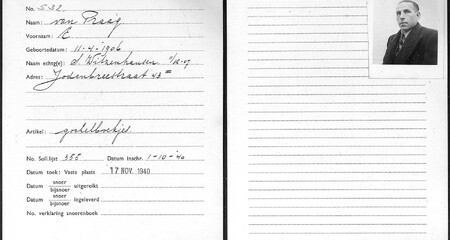 No. 532
Naam: van Praag
Voornaam: E
Geboortedatum: 11-4-1906
Naam echtg(e): d. Witzenhausen
Adres: Jodenbreestraat 43
Artikel:
No. Soll.lijst 355 Datum inschr. 1-10-'40
Datum toek: Vaste plaats 12 NOV. 1940
Datum snoer bijsnoer uitgereikt
Datum snoer bijsnoer ingeleverd
No. verklaring snoerenboek